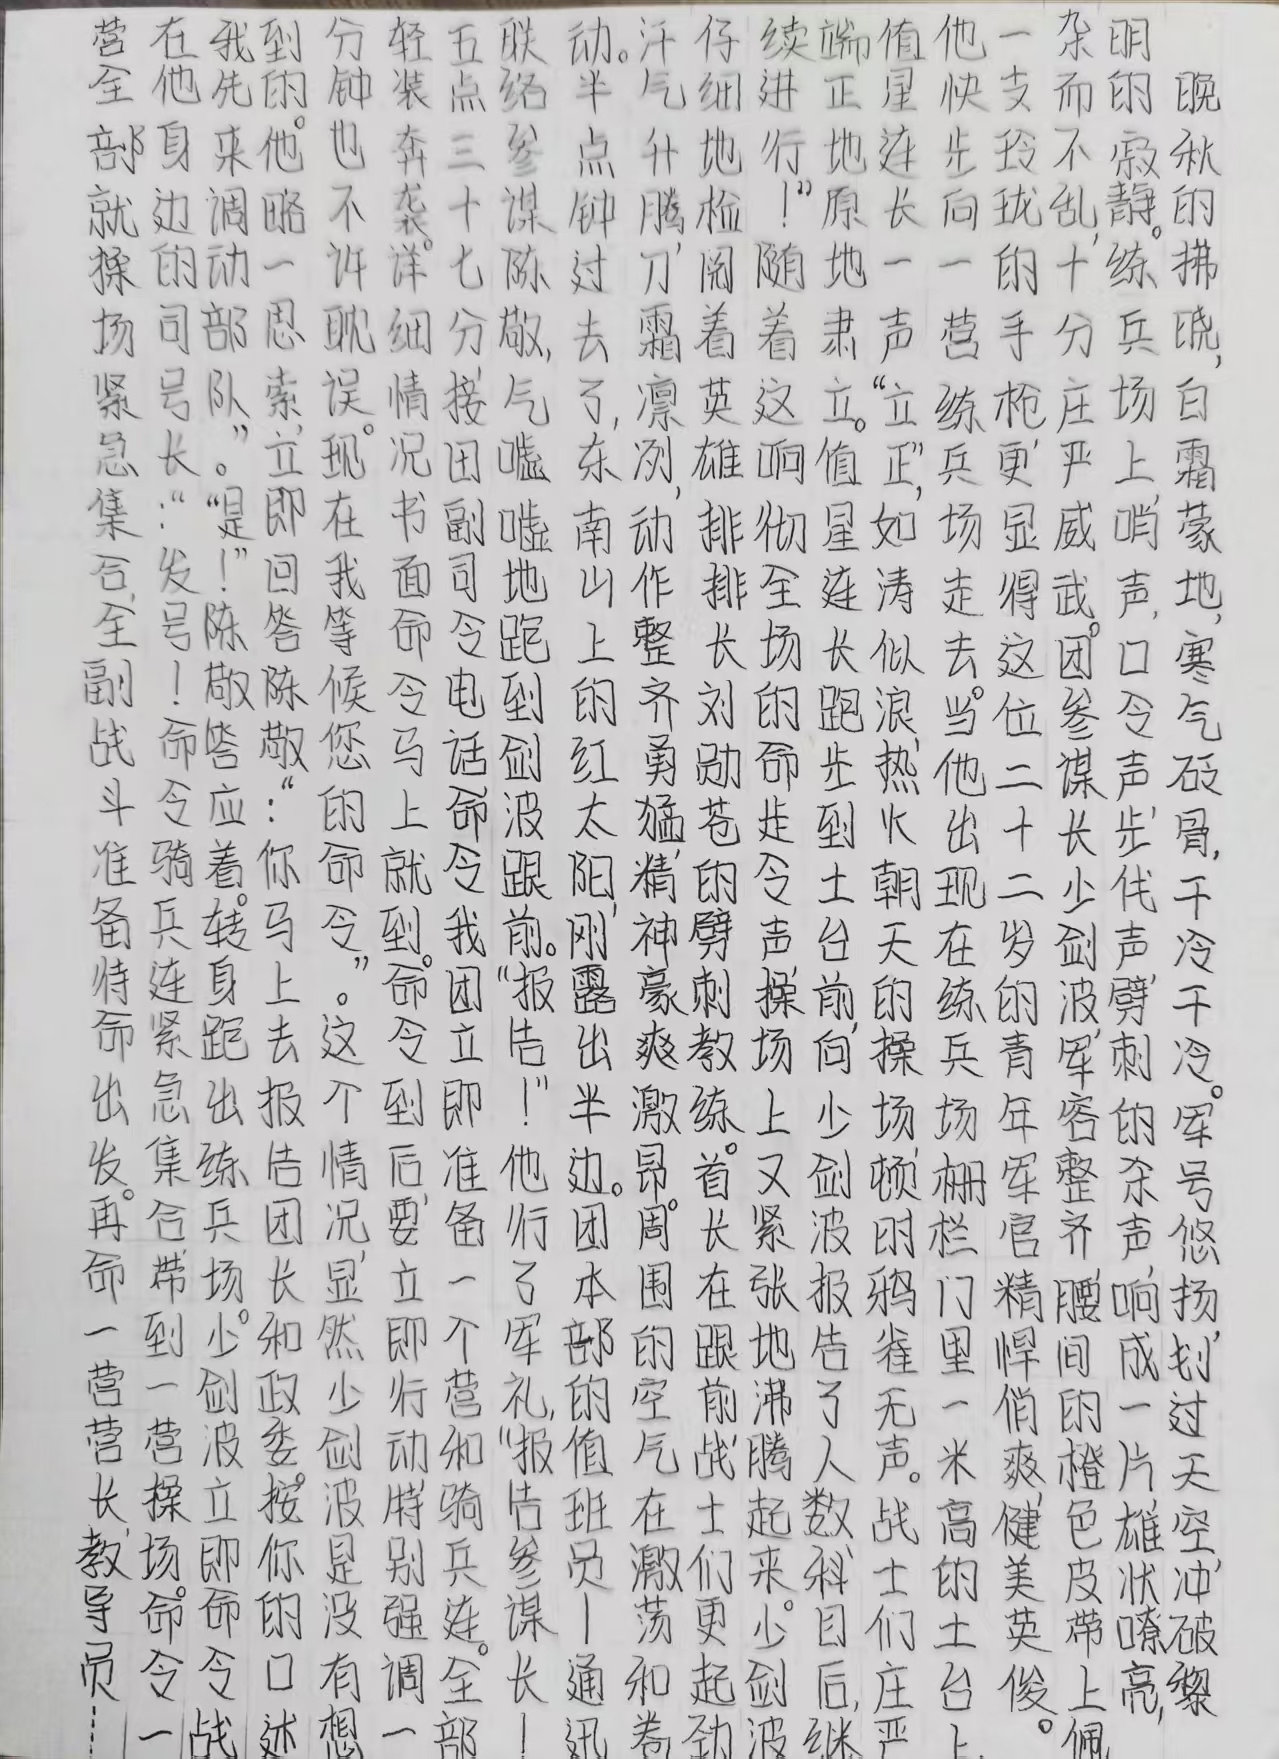 晚秋的拂晓，白霜蒙地，寒气砭骨，干冷干冷。军号悠扬，划过天空，冲破黎
明的寂静。练兵场上，哨声，口令声，步伐声，劈刺的杀声，响成一片，雄状嘹亮，
杂而不乱，十分庄严威武。团参谋长少剑波，军容整齐，腰间的橙色皮带上佩
一支玲珑的手枪，更显得这位二十二岁的青年军官精悍俏爽，健美英俊。
他快步向一营练兵场走去。当他出现在练兵场栅栏门里一米高的土台上，
值星连长一声“立正”，如涛似浪，热火朝天的操场，顿时鸦雀无声。战士们庄严
端正地原地肃立。值星连长跑步到土台前，向少剑波报告了人数，科目后，继
续进行！”随着这响彻全场的命令声，操场上又紧张地沸腾起来。少剑波
仔细地检阅着英雄排排长刘勋苍的劈刺教练。首长在跟前，战士们更起劲
汗气升腾，刀霜凛冽，动作整齐勇猛，精神豪爽激昂。周围的空气在激荡和卷
动。半点钟过去了，东南山上的红太阳，刚露出半边。团本部的值班员—通讯
联络参谋陈敬，气嘘嘘地跑到剑波跟前。“报告！”他行了军礼，“报告参谋长！
五点三十七分，接田副司令电话，命令我团立即准备一个营和骑兵连。全部
轻装奔袭。详细情况书面命令马上就到。命令到后，要立即行动，特别强调一
分钟也不许耽误。现在我等候您的命令”。这个情况，显然少剑波是没有想
到的。他略一思索，立即回答陈敬：“你马上去报告团长和政委。按你的口述
我先来调动部队”。“是！”陈敬答应着。转身跑出练兵场。少剑波立即命令战
在他身边的司号长：“发号！命令骑兵连紧急集合，带到一营操场。命令一
营全部就操场紧急集合，全副战斗准备待命出发。再命一营营长，教导员……